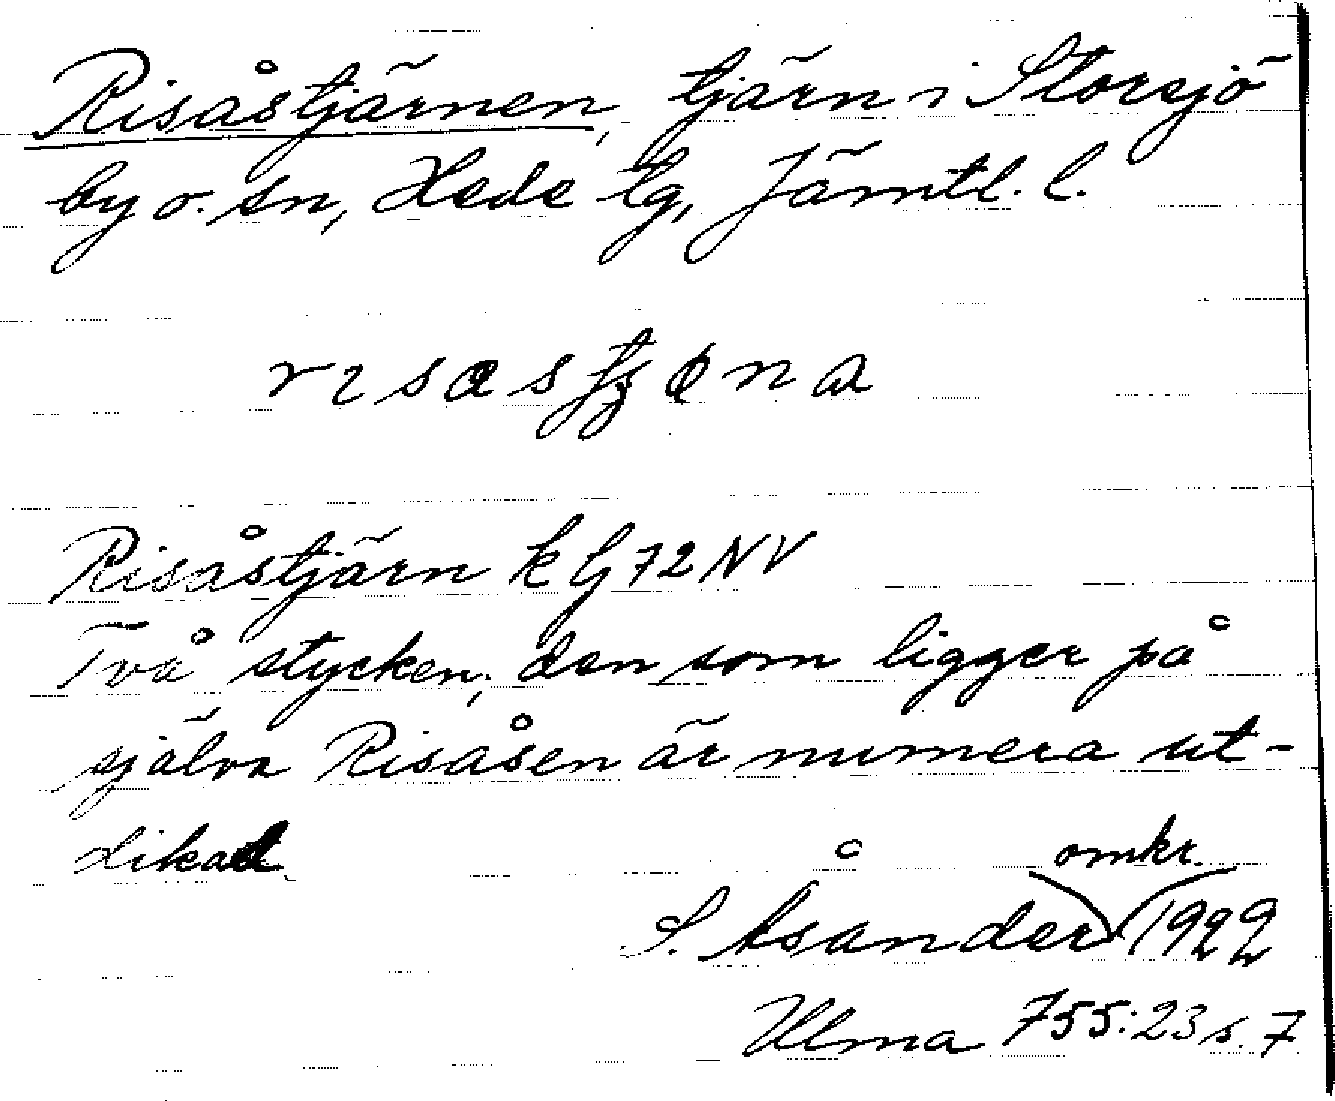 Risåstjärnen, tjärn i Storsjö
by o. sn, Hede tg, Jämtl. l.
Risåstjärn k G 72 NV
Två stycken; den som ligger på
själva Risåsen är numera ut-
dikad.
omkr.
S. Åsander 1922
Ulma 755:23 s. 7